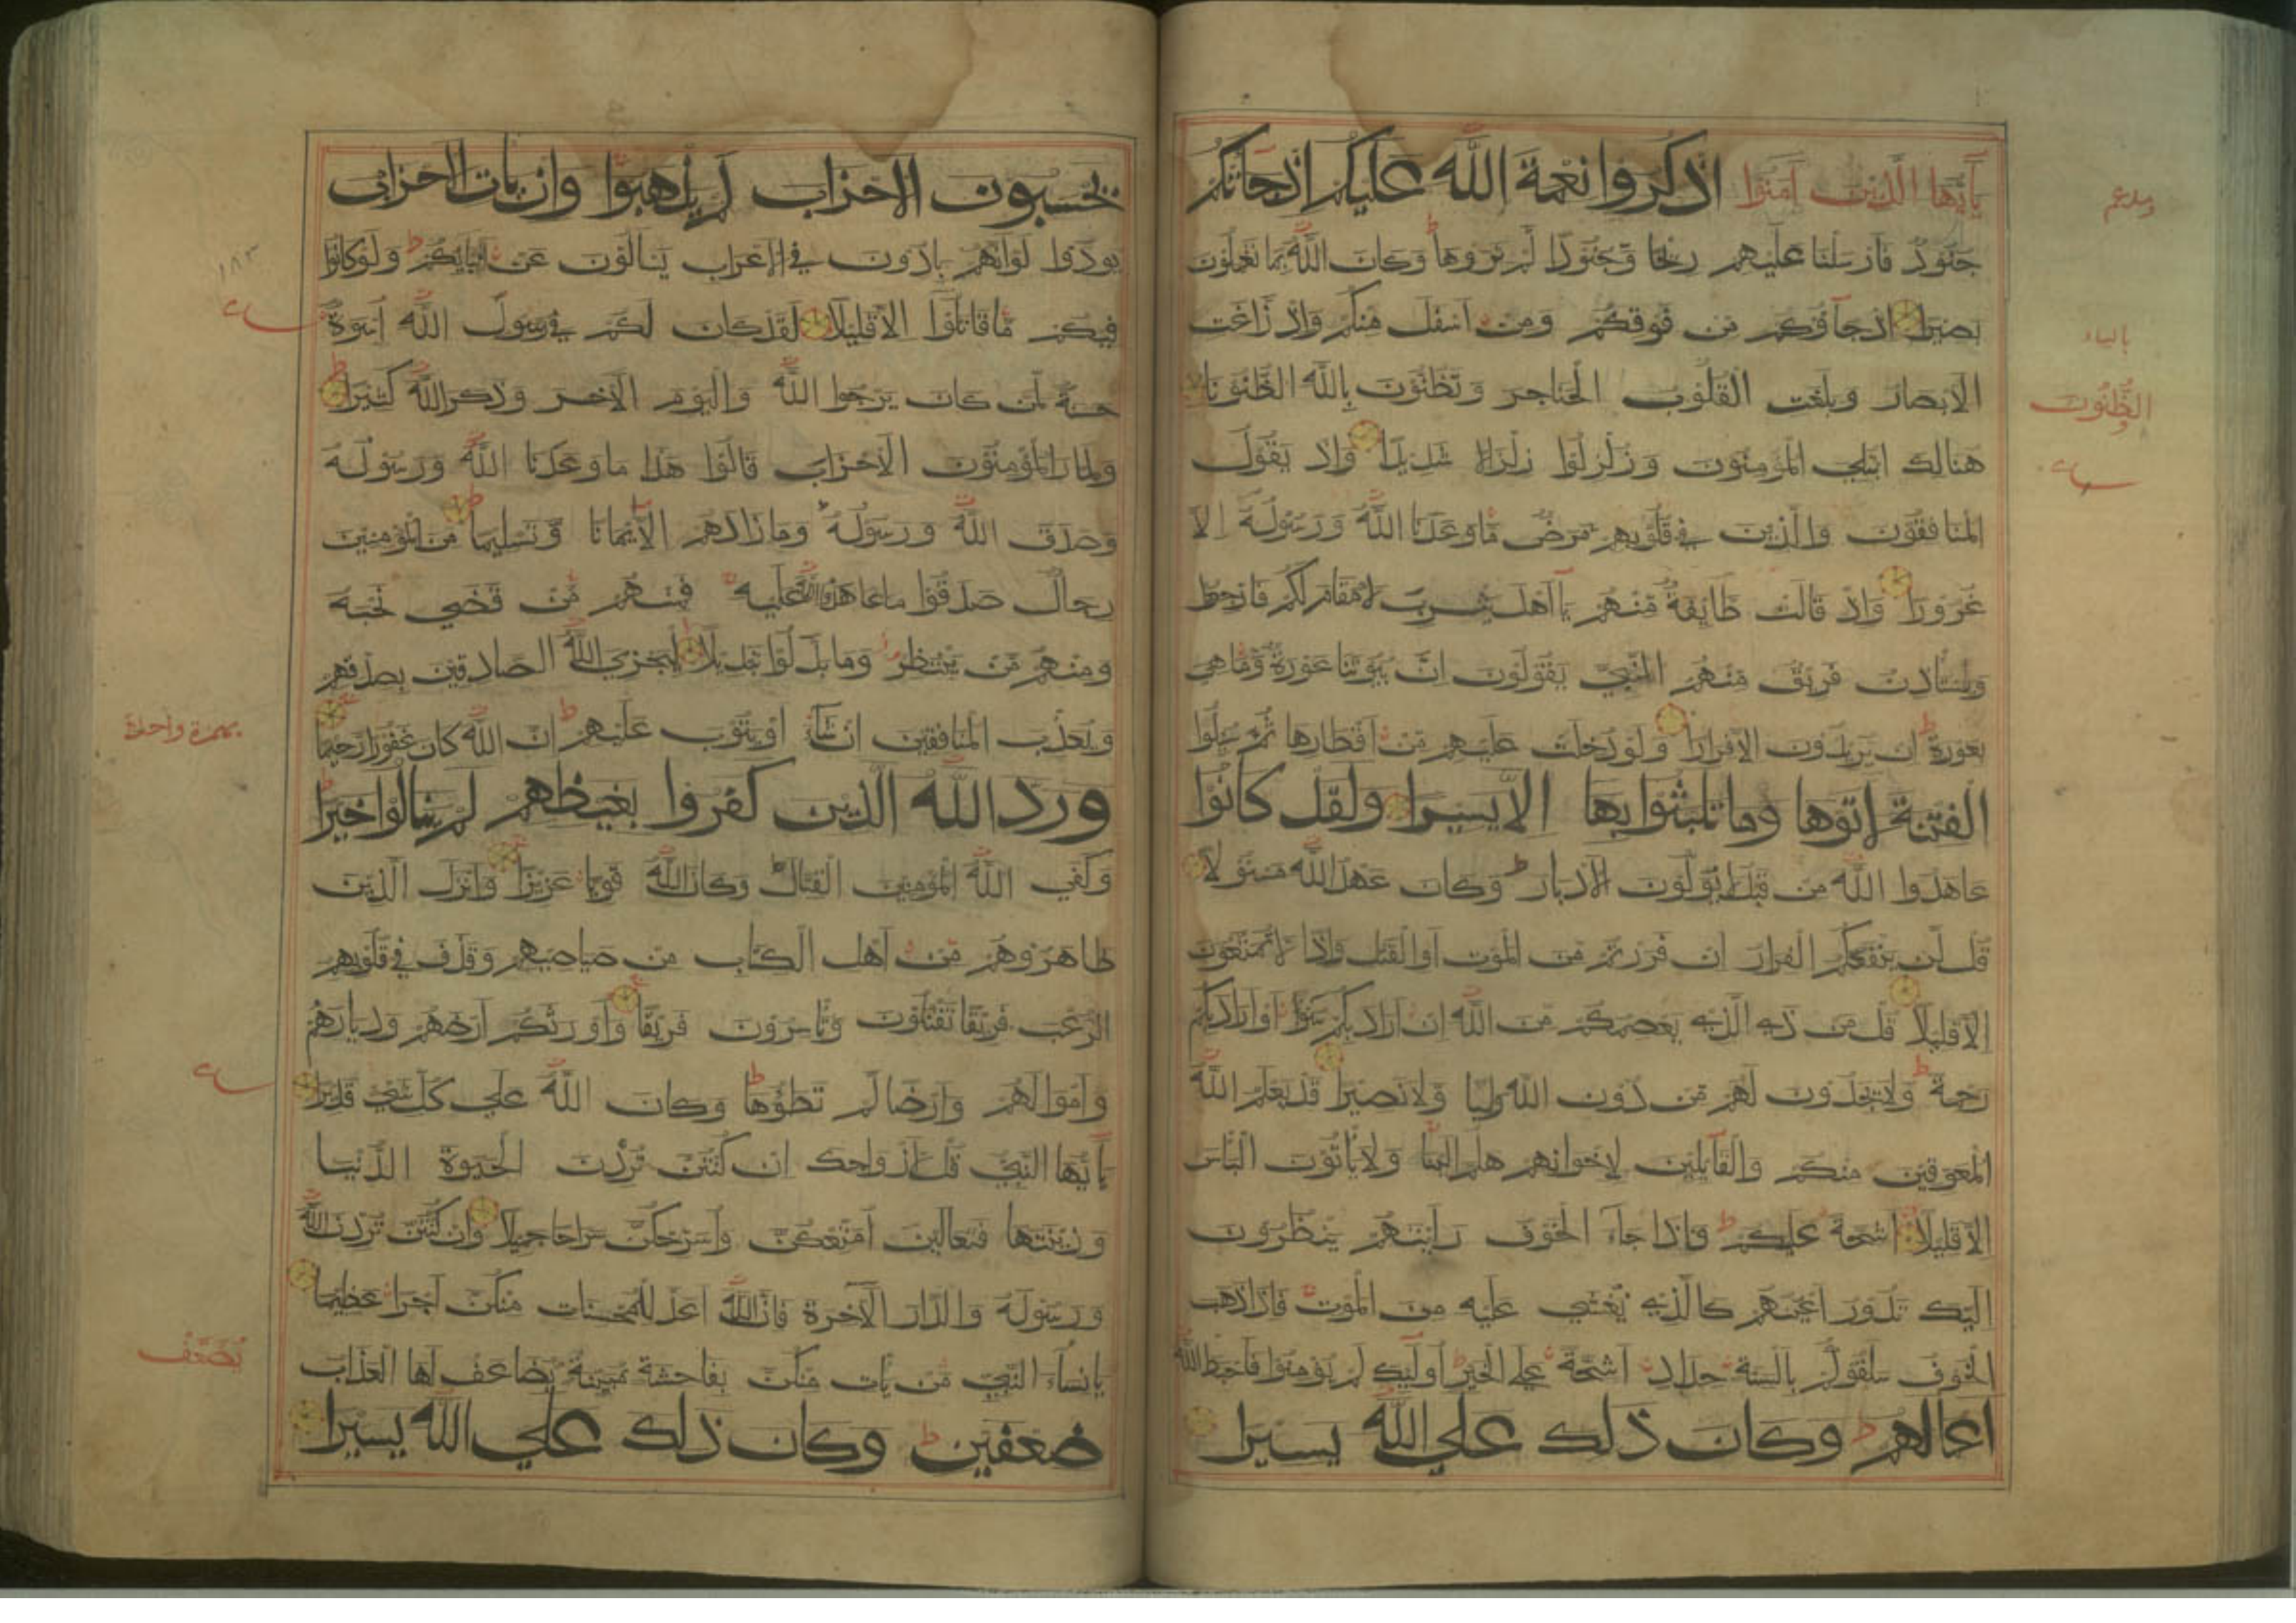 يٰأيها الذين آمنوا اذكروا نعمة الله عليكم اذ جاتكم
جنود فارسلنا عليهم ريحا وجنودا لم تروها وكان الله بما تعملون
بصيرا اذ جاؤكم من فوقكم ومن اسفل منكم واذ زاغت
الابصار وبلغت القلوب الحناجر وتظنون بالله الظنونا
هنالك ابتلي المؤمنون وزلزلوا زلزالا شديدا واذ يقول
المنافقون والذين في قلوبهم مرض ما وعدنا الله ورسوله الا
غرورا واذ قالت طايفة منهم يا اهل يثرب لا مقام لكم فارجعوا
ويستاذن فريق منهم النبي يقولون ان بيوتنا عورة وما هي
بعورة ان يريدون الا فرارا ولو دخلت عليهم من اقطارها ثم سئلوا
الفتنة لاتوها وما تلبثوا بها الا يسيرا ولقد كانوا
عاهدوا الله من قبل لا يولون الادبار وكان عهد الله مسئولا
قل لن ينفعكم الفرار ان فررتم من الموت او القتل واذا لا تمتعون
الا قليلا قل من ذي الذي يعصمكم من الله ان اراد بكم سوءا او اراد بكم
رحمة ولا يجدون لهم من دون الله وليا ولا نصيرا قد يعلم الله
المعوقين منكم والقايلين لاخوانهم هلم الينا ولا ياتون الباس
الا قليلا اشحة عليكم فاذا جاء الخوف رايتهم ينظرون
اليك تدور اعينهم كالذي يغشي عليه من الموت فاذا ذهب
الخوف سلقوكم بالسنة حداد اشحة علي الخير اوليك لم يؤمنوا فاحبط الله
اعمالهم وكان ذلك علي الله يسيرا
بالياء
الظنون
يحسبون الاحزاب لم يذهبوا وان يات الاحزاب
يودوا لو انهم بادون في الاعراب يسالون عن انبايكم ولو كانوا
فيكم ما قاتلوا الا قليلا لقد كان لكم في رسول الله اسوة
حسنة لمن كان يرجوا الله واليوم الآخر وذكر الله كثيرا
ولما را المؤمنون الاحزاب قالوا هذا ما وعدنا الله ورسوله
وصدق الله ورسوله وما زادهم الا ايمانا وتسليما من المؤمنين
رجال صدقوا ما عاهدوا الله عليه فمنهم من قضي نحبه
ومنهم من ينتظر وما بدلوا تبديلا ليجزي الله الصادقين بصدقهم
ويعذب المنافقين ان شاء او يتوب عليهم ان الله كان غفورا رحيما
ورد الله الذين كفروا بغيظهم لم ينالوا خيرا
وكفي الله المؤمنين القتال وكان الله قويا عزيزا وانزل الذين
ظاهروهم من اهل الكتاب من صياصيهم وقذف في قلوبهم
الرعب فريقا تقتلون وتاسرون فريقا واورثكم ارضهم وديارهم
واموالهم وارضا لم تطؤها وكان الله علي كل شئ قديرا
يا ايها النبي قل لازواجك ان كنتن تردن الحيوة الدنيا
وزينتها فتعالين امتعكن واسرحكن سراحا جميلا وان كنتن تردن الله
ورسوله والدار الآخرة فان الله اعد للمحسنات منكن اجرا عظيما
يا نساء النبي من يات منكن بفاحشة مبينة يضاعف لها العذاب
ضعفين وكان ذلك علي الله يسيرا
١٨٣
بهمزة واحدة
يضعف